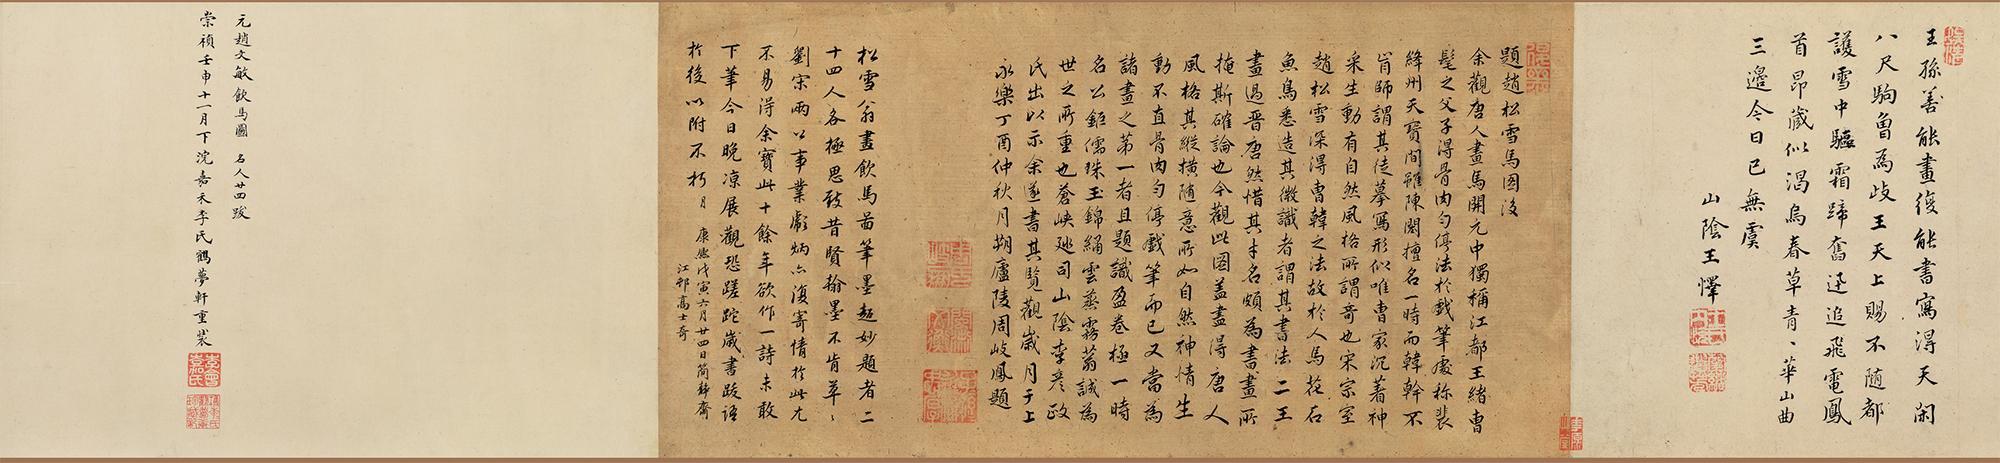 王孫善能畫復能書寫得天閑
八尺駒曾為歧王天上賜不隨都
護雪中驅霜蹄奮迅追飛電鳳
首昂藏似渴烏春草青〻華山曲
三邊今日已無虞
山陰王懌
題趙松雪馬圖後
余觀唐人畫馬開元中獨稱江都王緒曹
髦之父子得骨肉勻停法於戲筆處称裴
絳州天寶間雖陳閎擅名一時而韓幹不
肯師謂其徒摹寫形似唯曹家沉著神
采生動有自然風格所謂奇也宋宗室
趙松雪深得曹韓之法故於人馬花石
魚鳥悉造其微識者謂其書法二王
畫過晋唐然惜其才名頗為書畫所
掩斯確論也今觀此圖盖盡得唐人
風格其縱橫隨意所如自然神情生
動不直骨肉勻停戲筆而已又當為
諸畫之苐一者且題識盈卷極一時
名公鉅儒珠玉錦繡雲蒸霧蓊誠為
世之所重也蒼峽廵司山陰李彦政
氏出以示余遂書其覽觀歲月于上
永樂丁酉仲秋月朔廬陵周岐鳳題
松雪翁畫飲馬啚筆墨超妙題者二
十四人各極思致昔賢翰墨不肯草〻
劉宋兩公事業彪炳亦復寄情於此尤
不易得余寶此十餘年欲作一詩未敢
下筆今日晚凉展觀恐蹉跎歲書跋语
於後以附不朽
康熙戊寅六月廿四日簡静齋
江邨高士奇
元趙文敏飲馬圖　名人廿四跋
崇禎壬申十一月下浣嘉禾李氏鶴夢軒重裝